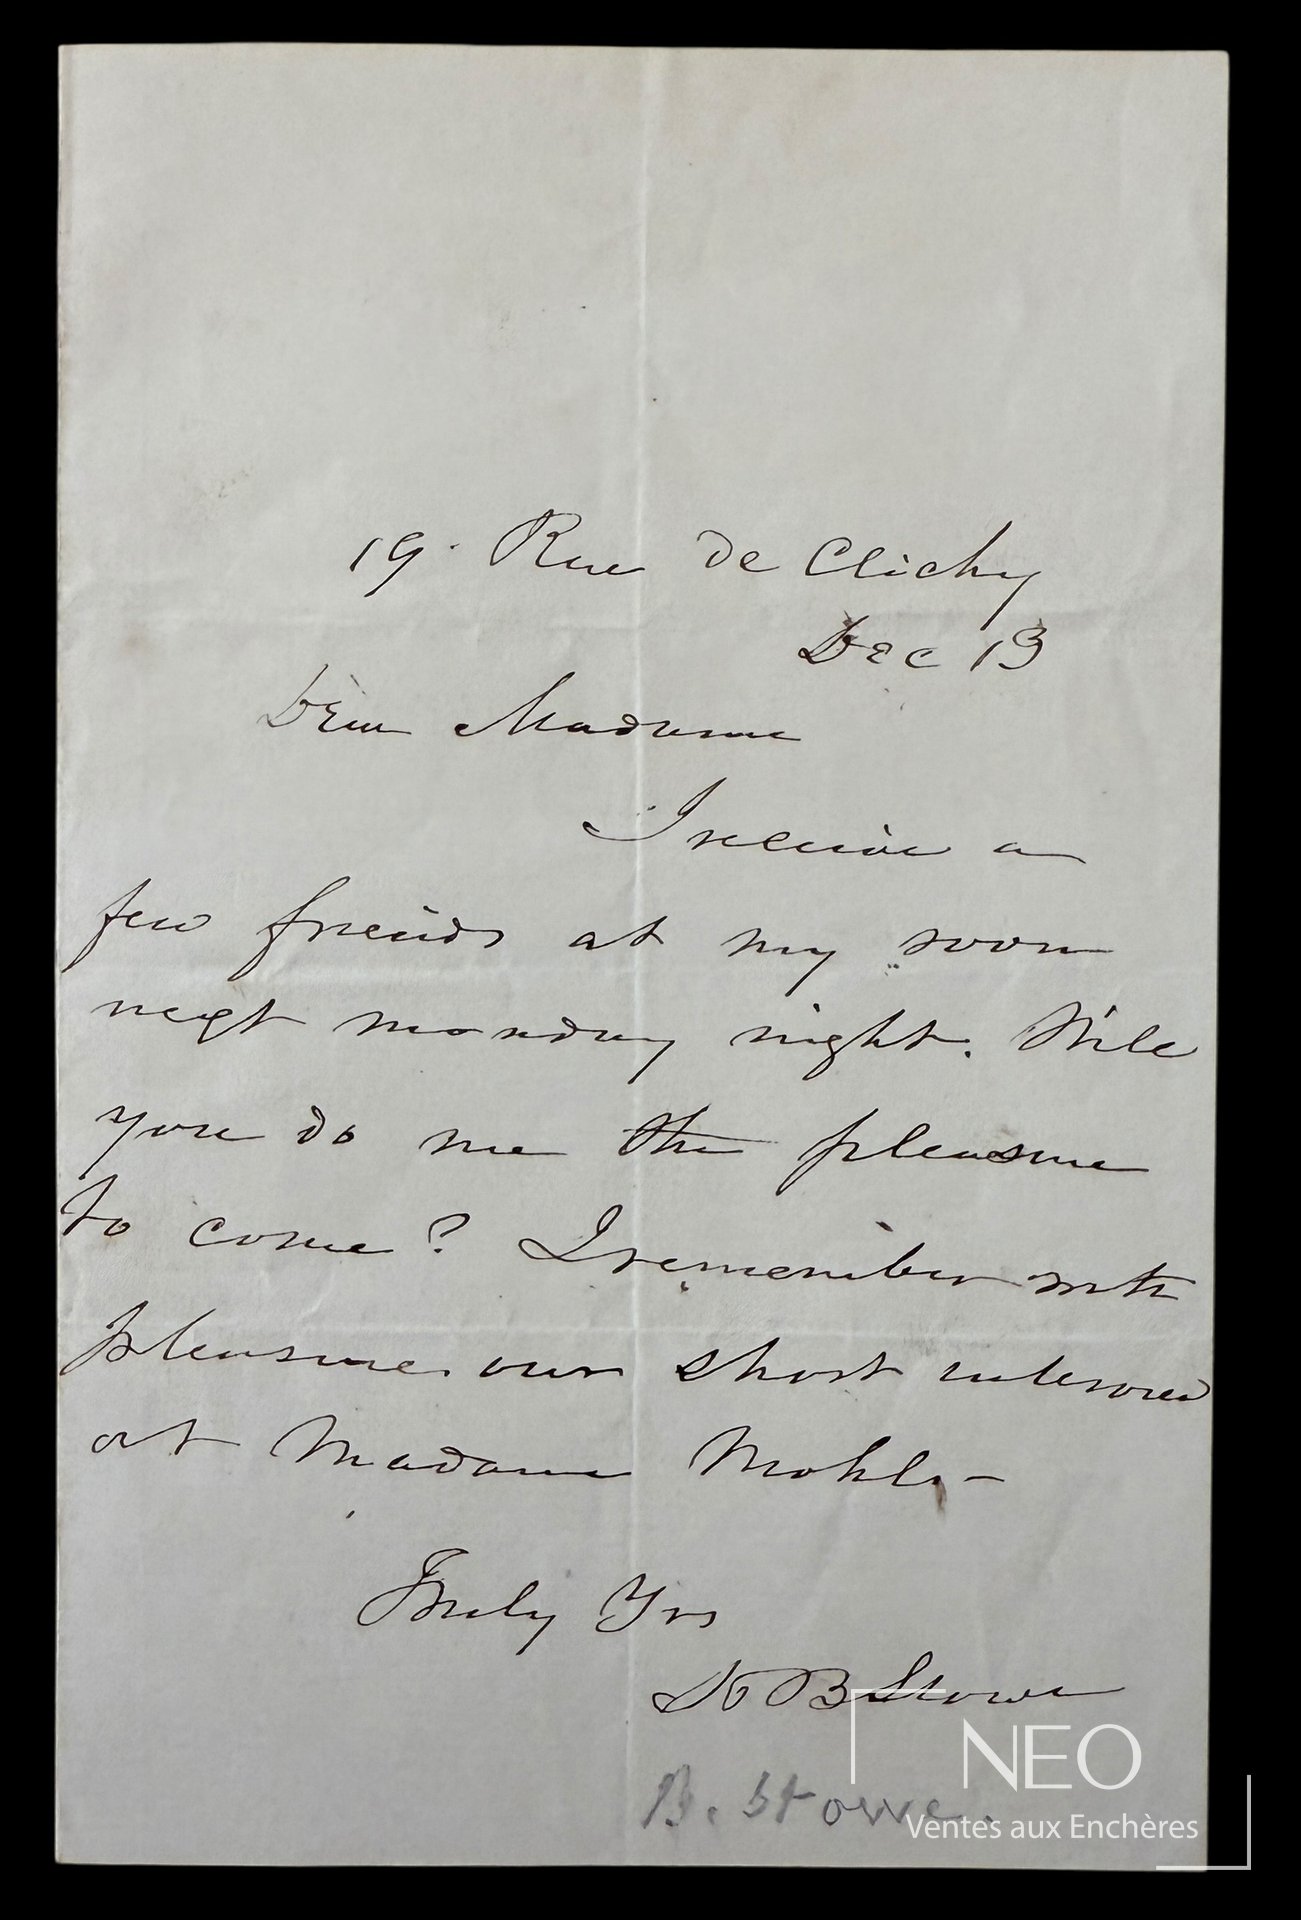 19. Rue de Clichy
Dec 13
Dear Madame
I receive a
few friends at my room
next monday night. Will
you do me the pleasure
to come? I remember with
pleasure our short interview
at Madame Mohls. –
Truly Yrs
H B Stowe
B. Stowe.
NEO
Ventes aux Enchères